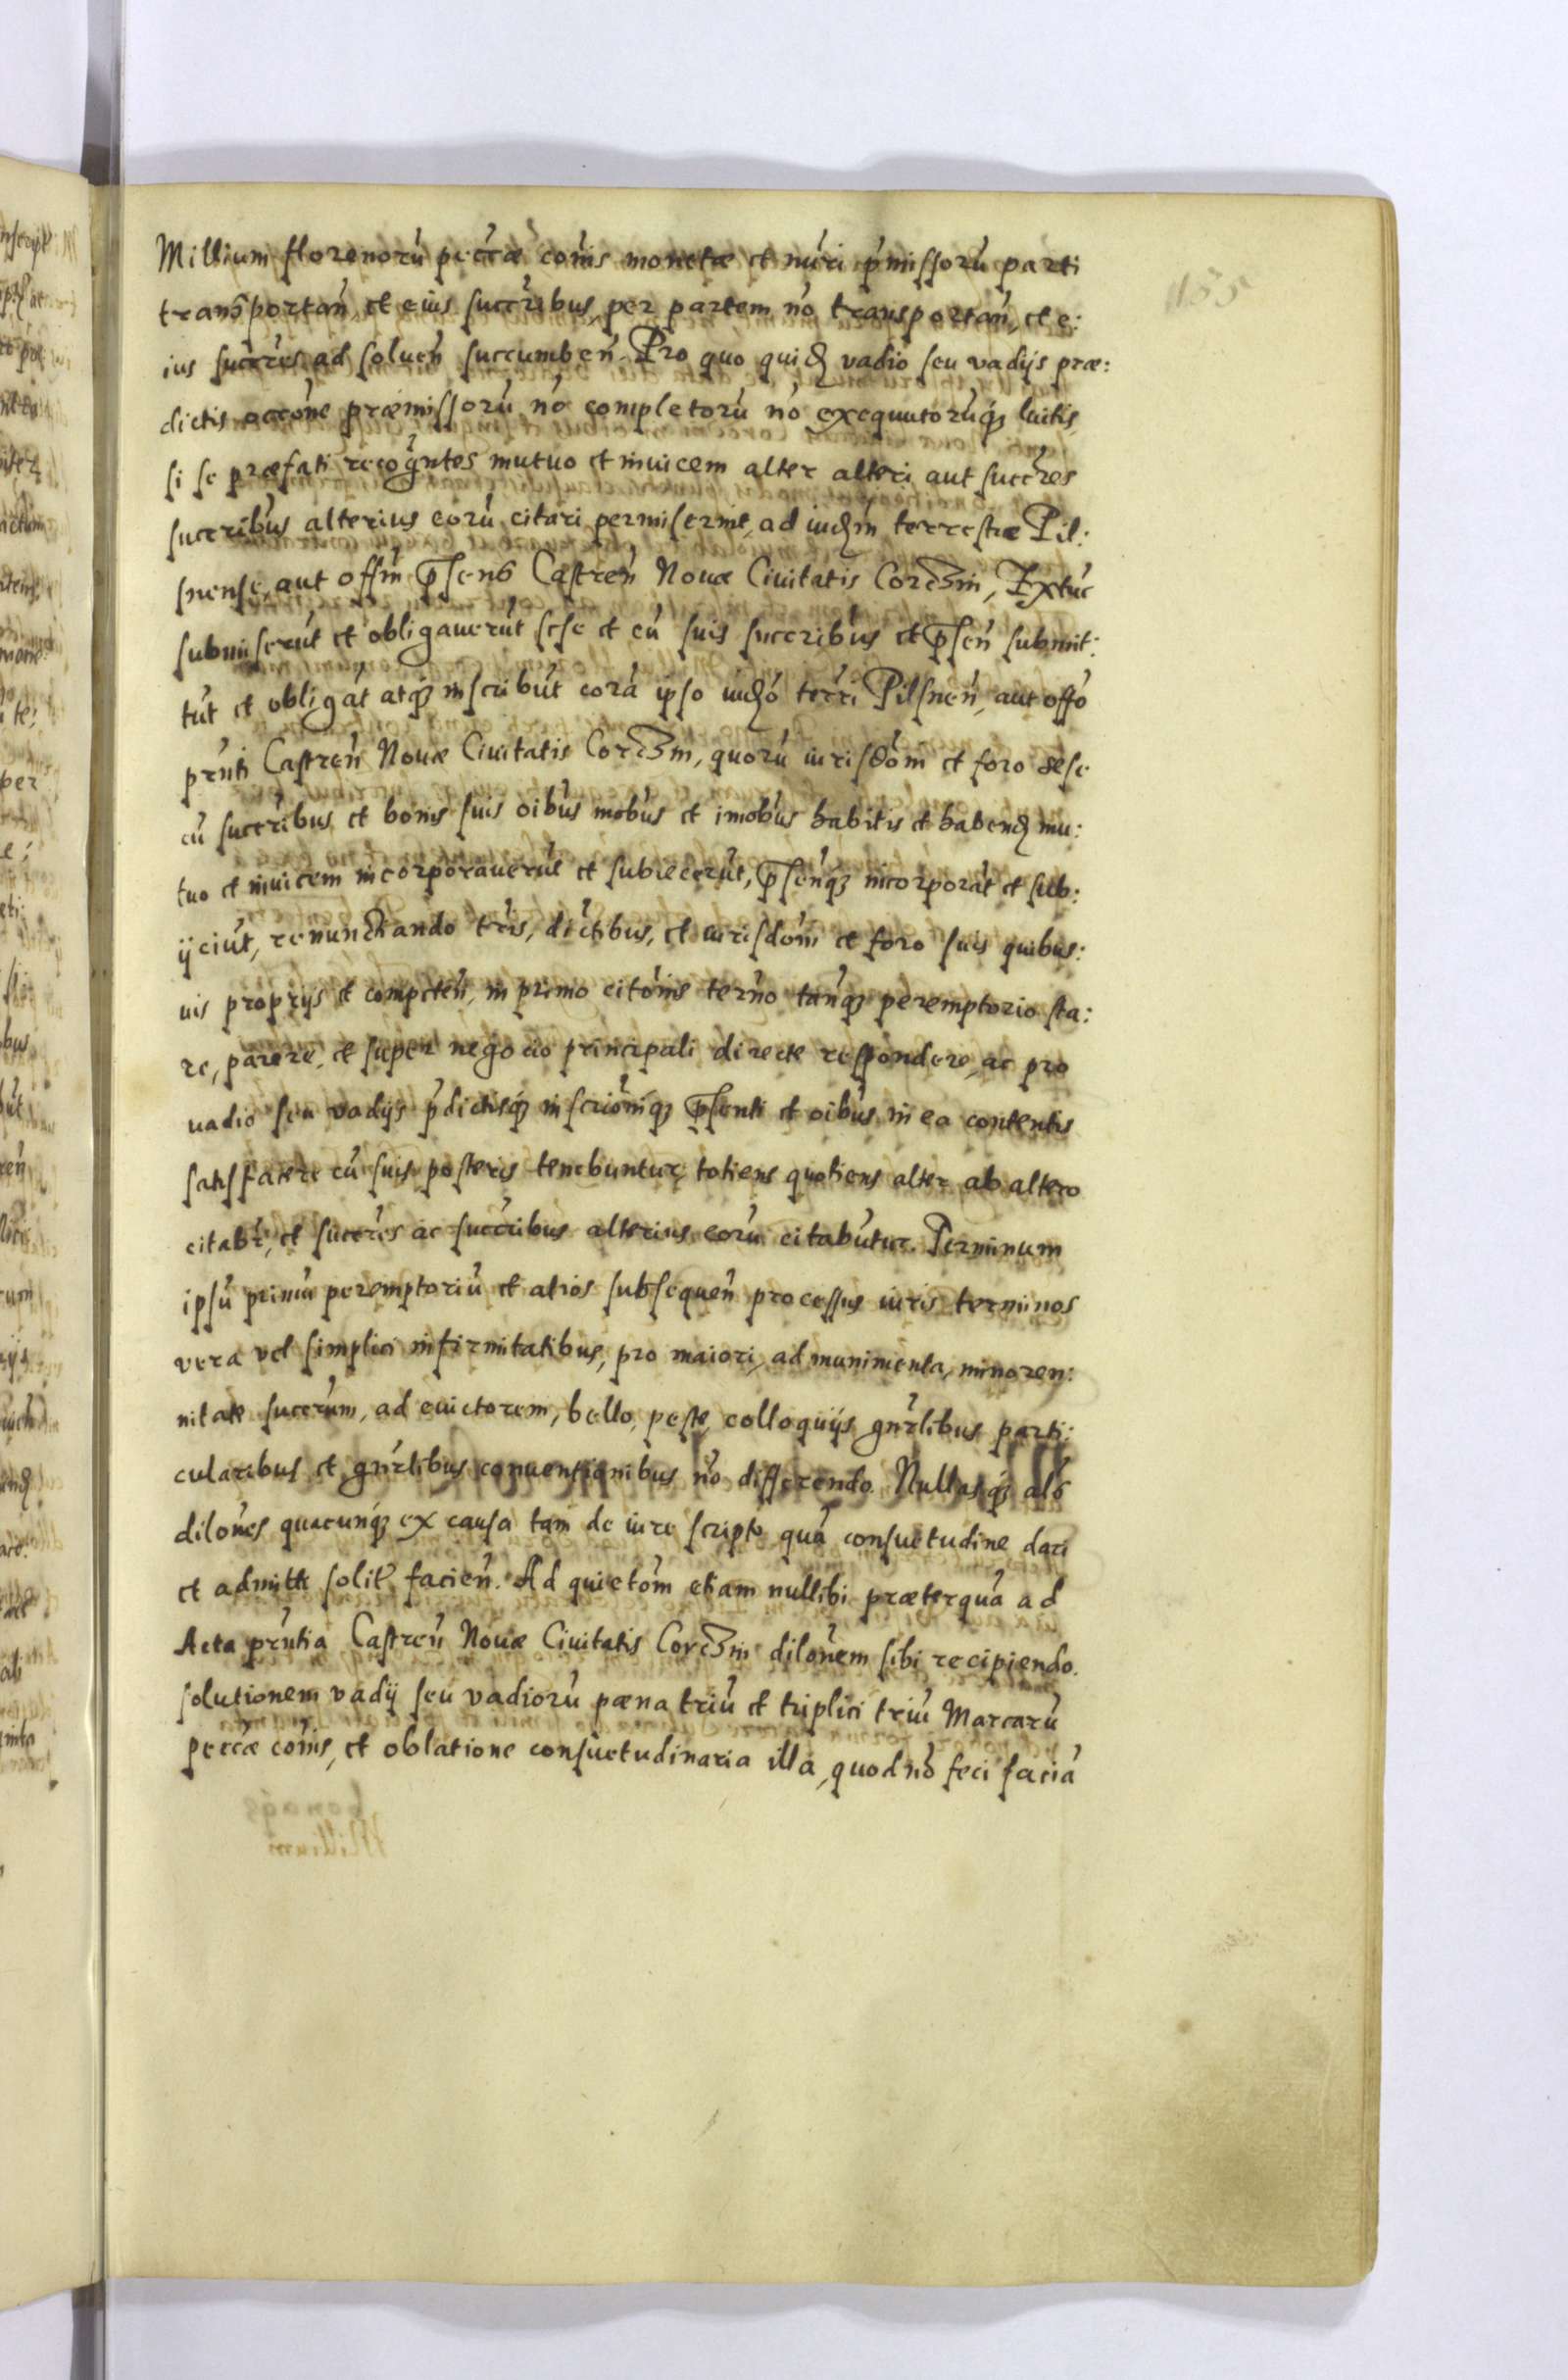 Millium florenorū pecciæ com̄is monetæ et nūri p̄missorū parti
transportan̄ et eius succr̄ibus, per partem nō transportan̄, et e:
ius succr̄es ad soluen̄ succumben̄. Pro quo quid vadio seu vadijs præ:
dictis occōne præmissorū nō completorū nō exequutorūq3 luitis,
si se præfati recogn̄tes mutuo et inuicem alter alteri aut succr̄es
succrib̄us alterius eorū citari permiserint, ad iud̄m terrestræ Pil:
snense, aut offm̄ p̄sens Castren̄ Nouæ Ciuitatis Corczin, Extūc
submiserūt et obligauerūt sese et cū suis succrib̄us et p̄sen̄ submit:
tūt et obligāt atq3 inscribūt corā ipso iud̄o terri Pilsnen̄, aut offō
prn̄ti Castren̄ Nouæ Ciuitatis Corczin, quorū iurisdōni et foro sese
cū succribus et bonis suis oib̄us mob̄us et imob̄us habitis et habend mu:
tuo et inuicem incorporauerūt et subiecerūt, p̄senq3 incorporāt et sub:
ijciūt, renunciando tr̄is, dictibus, et iurisdōni et foro suis quibus:
uis proprijs et competen̄, in primo citōnis tern̄o tanq3 peremptorio sta:
re, parere, et super negocio principali directe respondere, ac pro
uadio seu vadijs p̄dictisq3 inscrionīq3 p̄senti et oib̄us in ea contentis
satisfacere cū suis posteris tenebuntur, totiens quotiens alter ab altero
citabr̄, et succr̄es ac succr̄ibus alterius eorū citabūtur. Terminum
ipsū primū peremptoriū et alios subsequen̄ processus iuris terminos
vera vel simplici infirmitatibus, pro maiori, ad munimenta, minoren:
nitate succrum, ad euictorem, bello, peste, colloquijs gnr̄libus parti:
cularibus et gnr̄libus conuentionibus nō differendo. Nullasq3 als
dilōnes quacunq3 ex causa tam de iure scripto quā consuetudine dari
et admitti solit̄ facien̄. Ad quietōm etiam nullibi præterquā ad
Acta prn̄tia Castren̄ Nouæ Ciuitatis Corczin dilōnem sibi recipiendo.
solutionem vadij seu vadiorū pæna triū et triplici triū Marcarū
pecciæ com̄is, et oblatione consuetudinaria illa, quod nō feci faciā